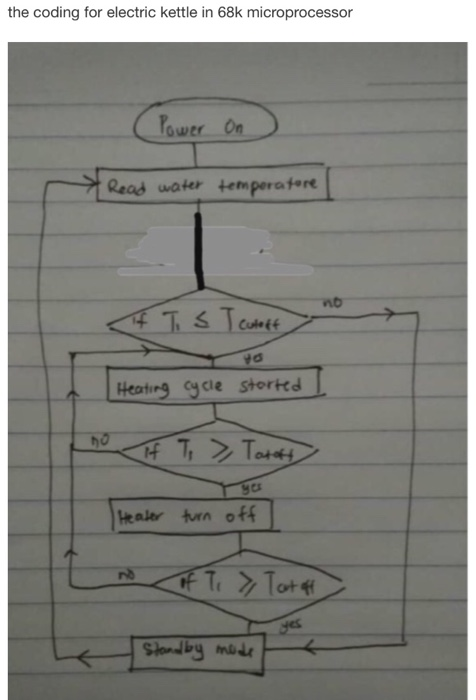 the coding for electric kettle in 68k microprocessor
Power On
Read water temperature
if T₁ ≤ Tcutoff
no
yes
Heating cycle started
no
if T₁ ≥ Tcutoff
yes
Heater turn off
no
if T₁ ≥ Tcutoff
yes
Standby mode